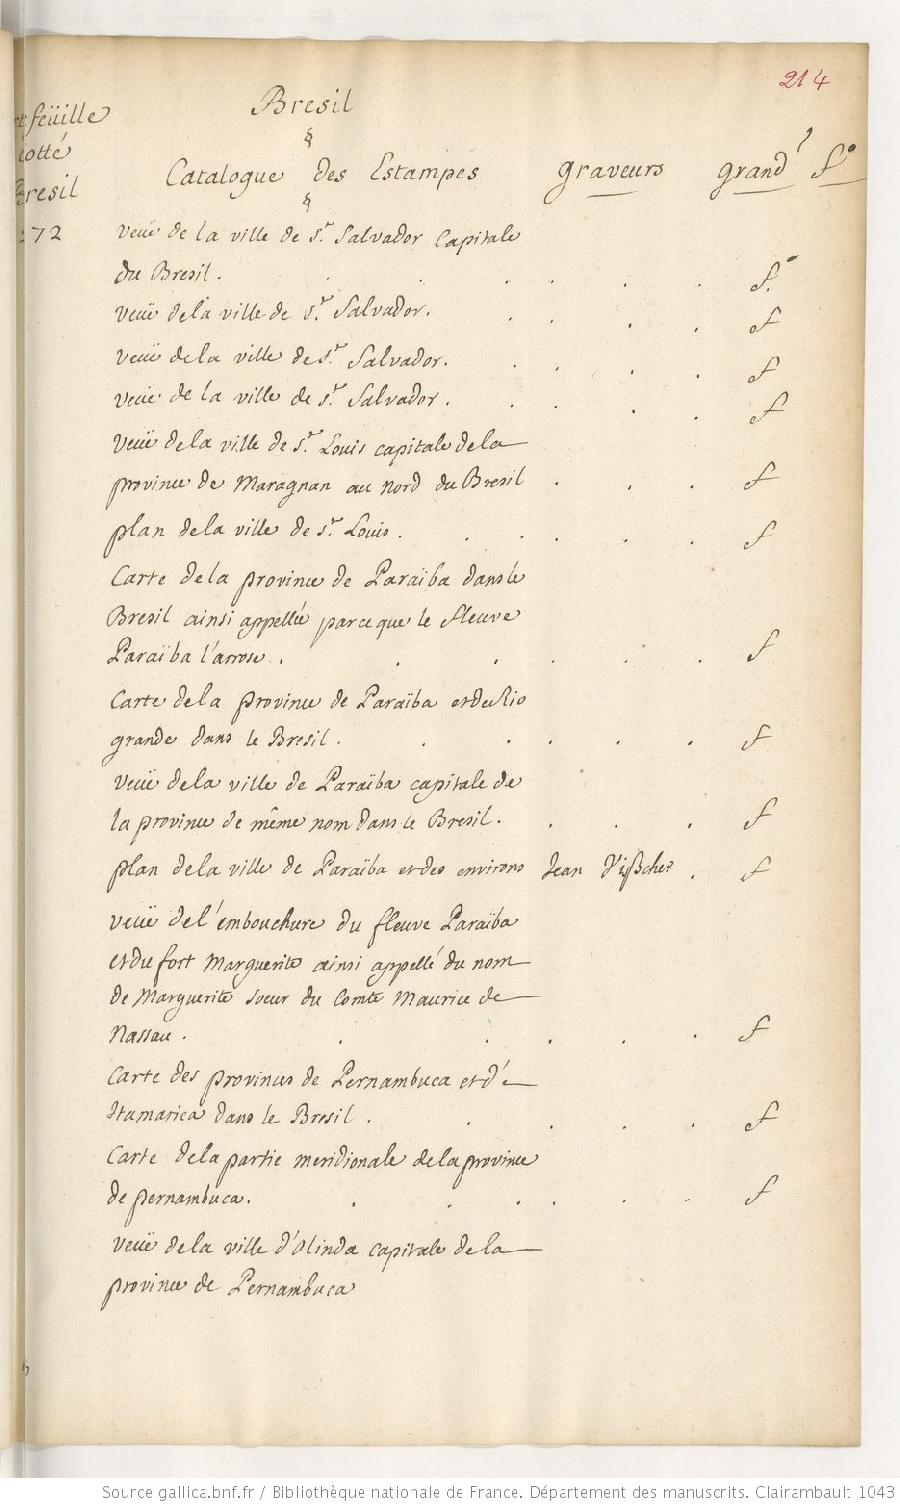 214
Bresil
feüille
cotté
Bresil
172
§
Catalogue des Estampes graveurs grand f.º
§
veüe de la ville de s.t Salvador Capitale
du Bresil . . . . . . f.º
veüe de la ville de s.t Salvador. . . . . f
veüe de la ville de s.t Salvador. . . . . f
veüe de la ville de s.t Salvador . . . . . f
veüe de la ville de s.t Louis capitale de la
province de Maragnan au nord du Bresil . . . f
plan de la ville de s.t Louis . . . . . . f
Carte de la province de Paraïba dans le
Bresil ainsi appellée parceque le fleuve
Paraïba l'arrose . . . . . . f
Carte de la province de Paraïba et du Rio
grande dans le Bresil . . . . . . f
veüe de la ville de Paraïba capitale de
la province de même nom dans le Bresil . . . . f
plan de la ville de Paraïba et des environs Jean Visscher . f
veüe de l'embouchure du fleuve Paraïba
et du fort Marguerite ainsi appellé du nom
de Marguerite soeur du Comte Maurice de
Nassau . . . . . . f
Carte des provinces de Pernambuca et d'
Itamarica dans le Bresil . . . . . f
Carte de la partie meridionale de la province
de pernambuca. . . . . . . f
Veüe de la ville d'Olinda capitale de la
province de Pernambuca
Source gallica.bnf.fr / Bibliothèque nationale de France. Département des manuscrits. Clairambault 1043